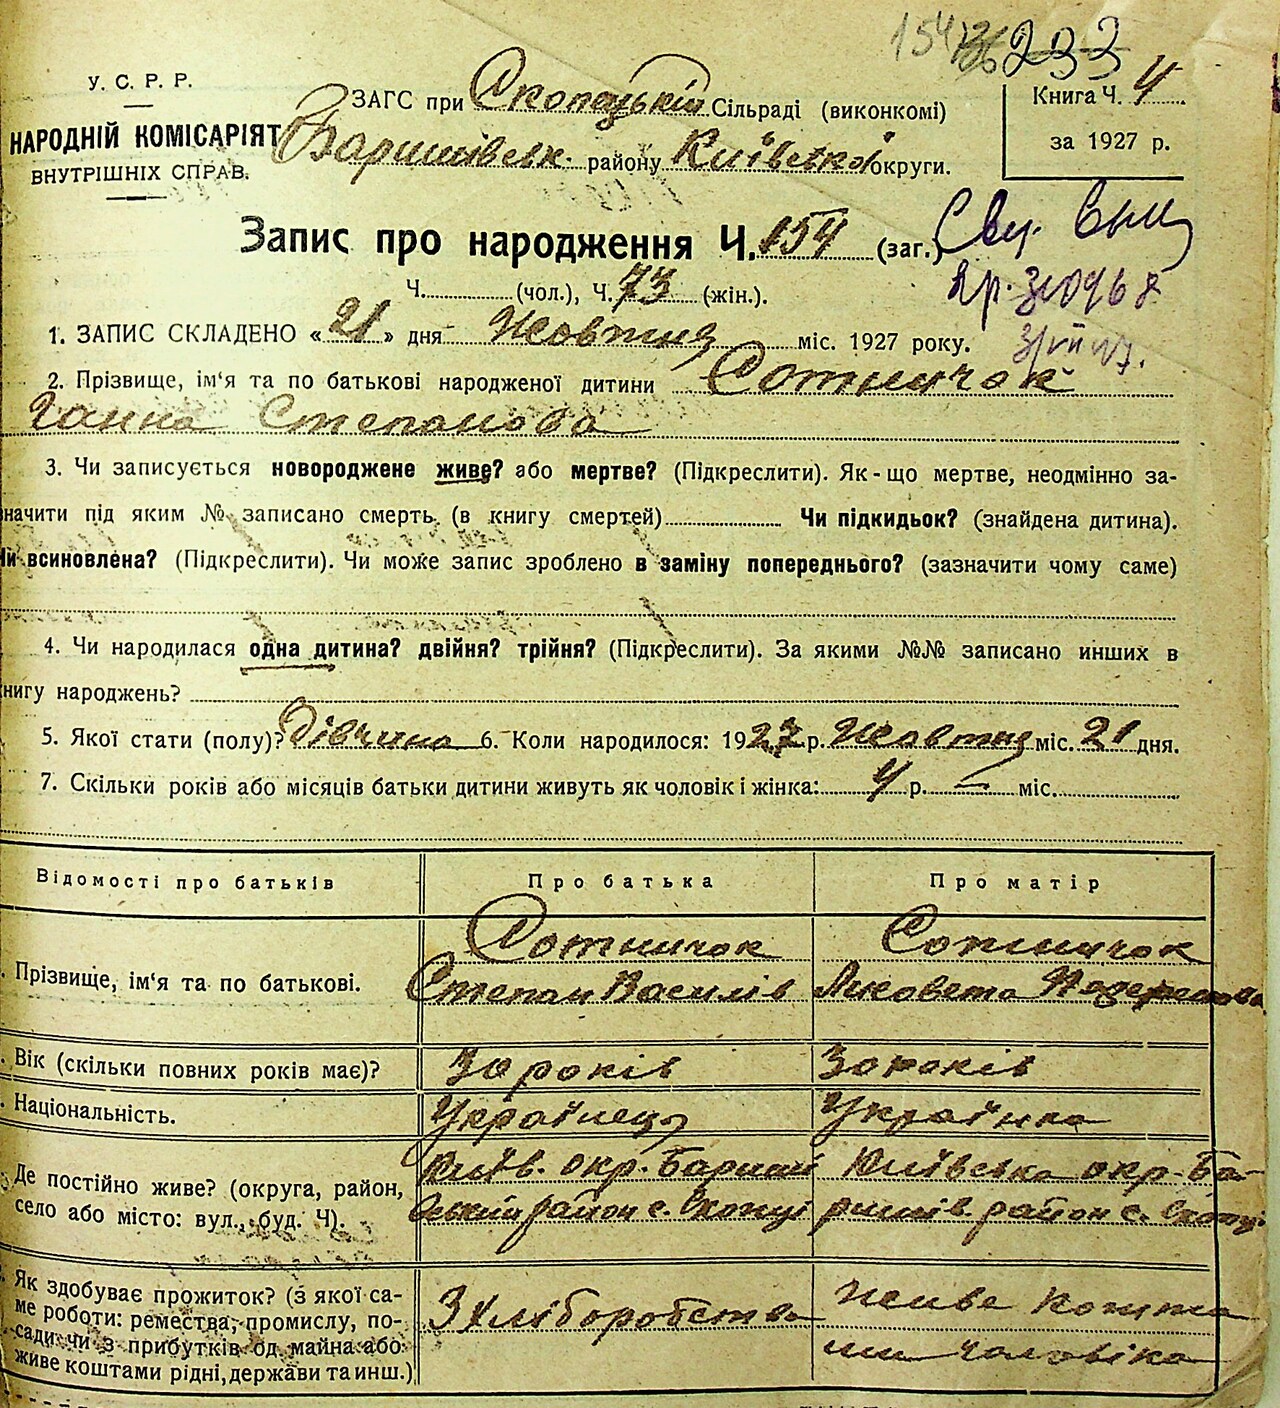 154 233
У. С. Р. Р.
НАРОДНІЙ КОМІСАРІЯТ
ВНУТРІШНІХ СПРАВ.
ЗАГС при Скопецькій Сільраді (виконкомі)
Баришівськ. району Київської округи.
Книга Ч. 4
за 1927 р.
Запис про народження Ч. 154 (заг.)
Ч. (чол.), Ч. 73 (жін.).
1. ЗАПИС СКЛАДЕНО « 21 » дня Жовтня міс. 1927 року.
2. Прізвище, ім‘я та по батькові народженої дитини Сотничок
Ганна Степанова
3. Чи записується новороджене живе? або мертве? (Підкреслити). Як-що мертве, неодмінно за-
значити під яким № записано смерть (в книгу смертей) Чи підкидьок? (знайдена дитина).
Чи всиновлена? (Підкреслити). Чи може запис зроблено в заміну попереднього? (зазначити чому саме)
4. Чи народилася одна дитина? двійня? трійня? (Підкреслити). За якими №№ записано инших в
книгу народжень?
5. Якої стати (полу)? Дівчина 6. Коли народилося: 1927 р. Жовтня міс. 21 дня.
7. Скільки років або місяців батьки дитини живуть як чоловік і жінка: 4 р. — міс.
Відомості про батьків Про батька Про матір
Прізвище, ім‘я та по батькові.
Сотничок
Степан Василів
Сотничок
Лисовета
Вік (скільки повних років має)? 30 років 30 років
Національність. Українець Українка
Де постійно живе? (округа, район,
село або місто: вул., буд. Ч).
Київ. окр. Баришів
ський район с. Скопці
Київська окр. Ба-
ришів. район с. Скопці
Як здобуває прожиток? (з якої са-
ме роботи: ремества, промислу, по-
сади чи з прибутків од майна або
живе коштами рідні, держави та инш.)
З хліборобства
живе кошта
ми чоловіка